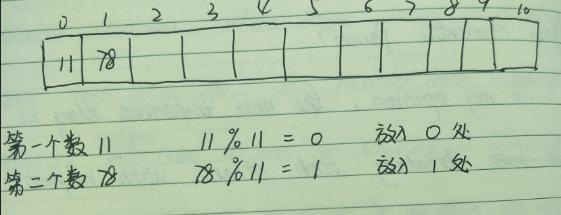 0 1 2 3 4 5 6 7 8 9 10
11 78
第一个数 11 11 % 11 = 0 放入 0 处
第二个数 78 78 % 11 = 1 放入 1 处